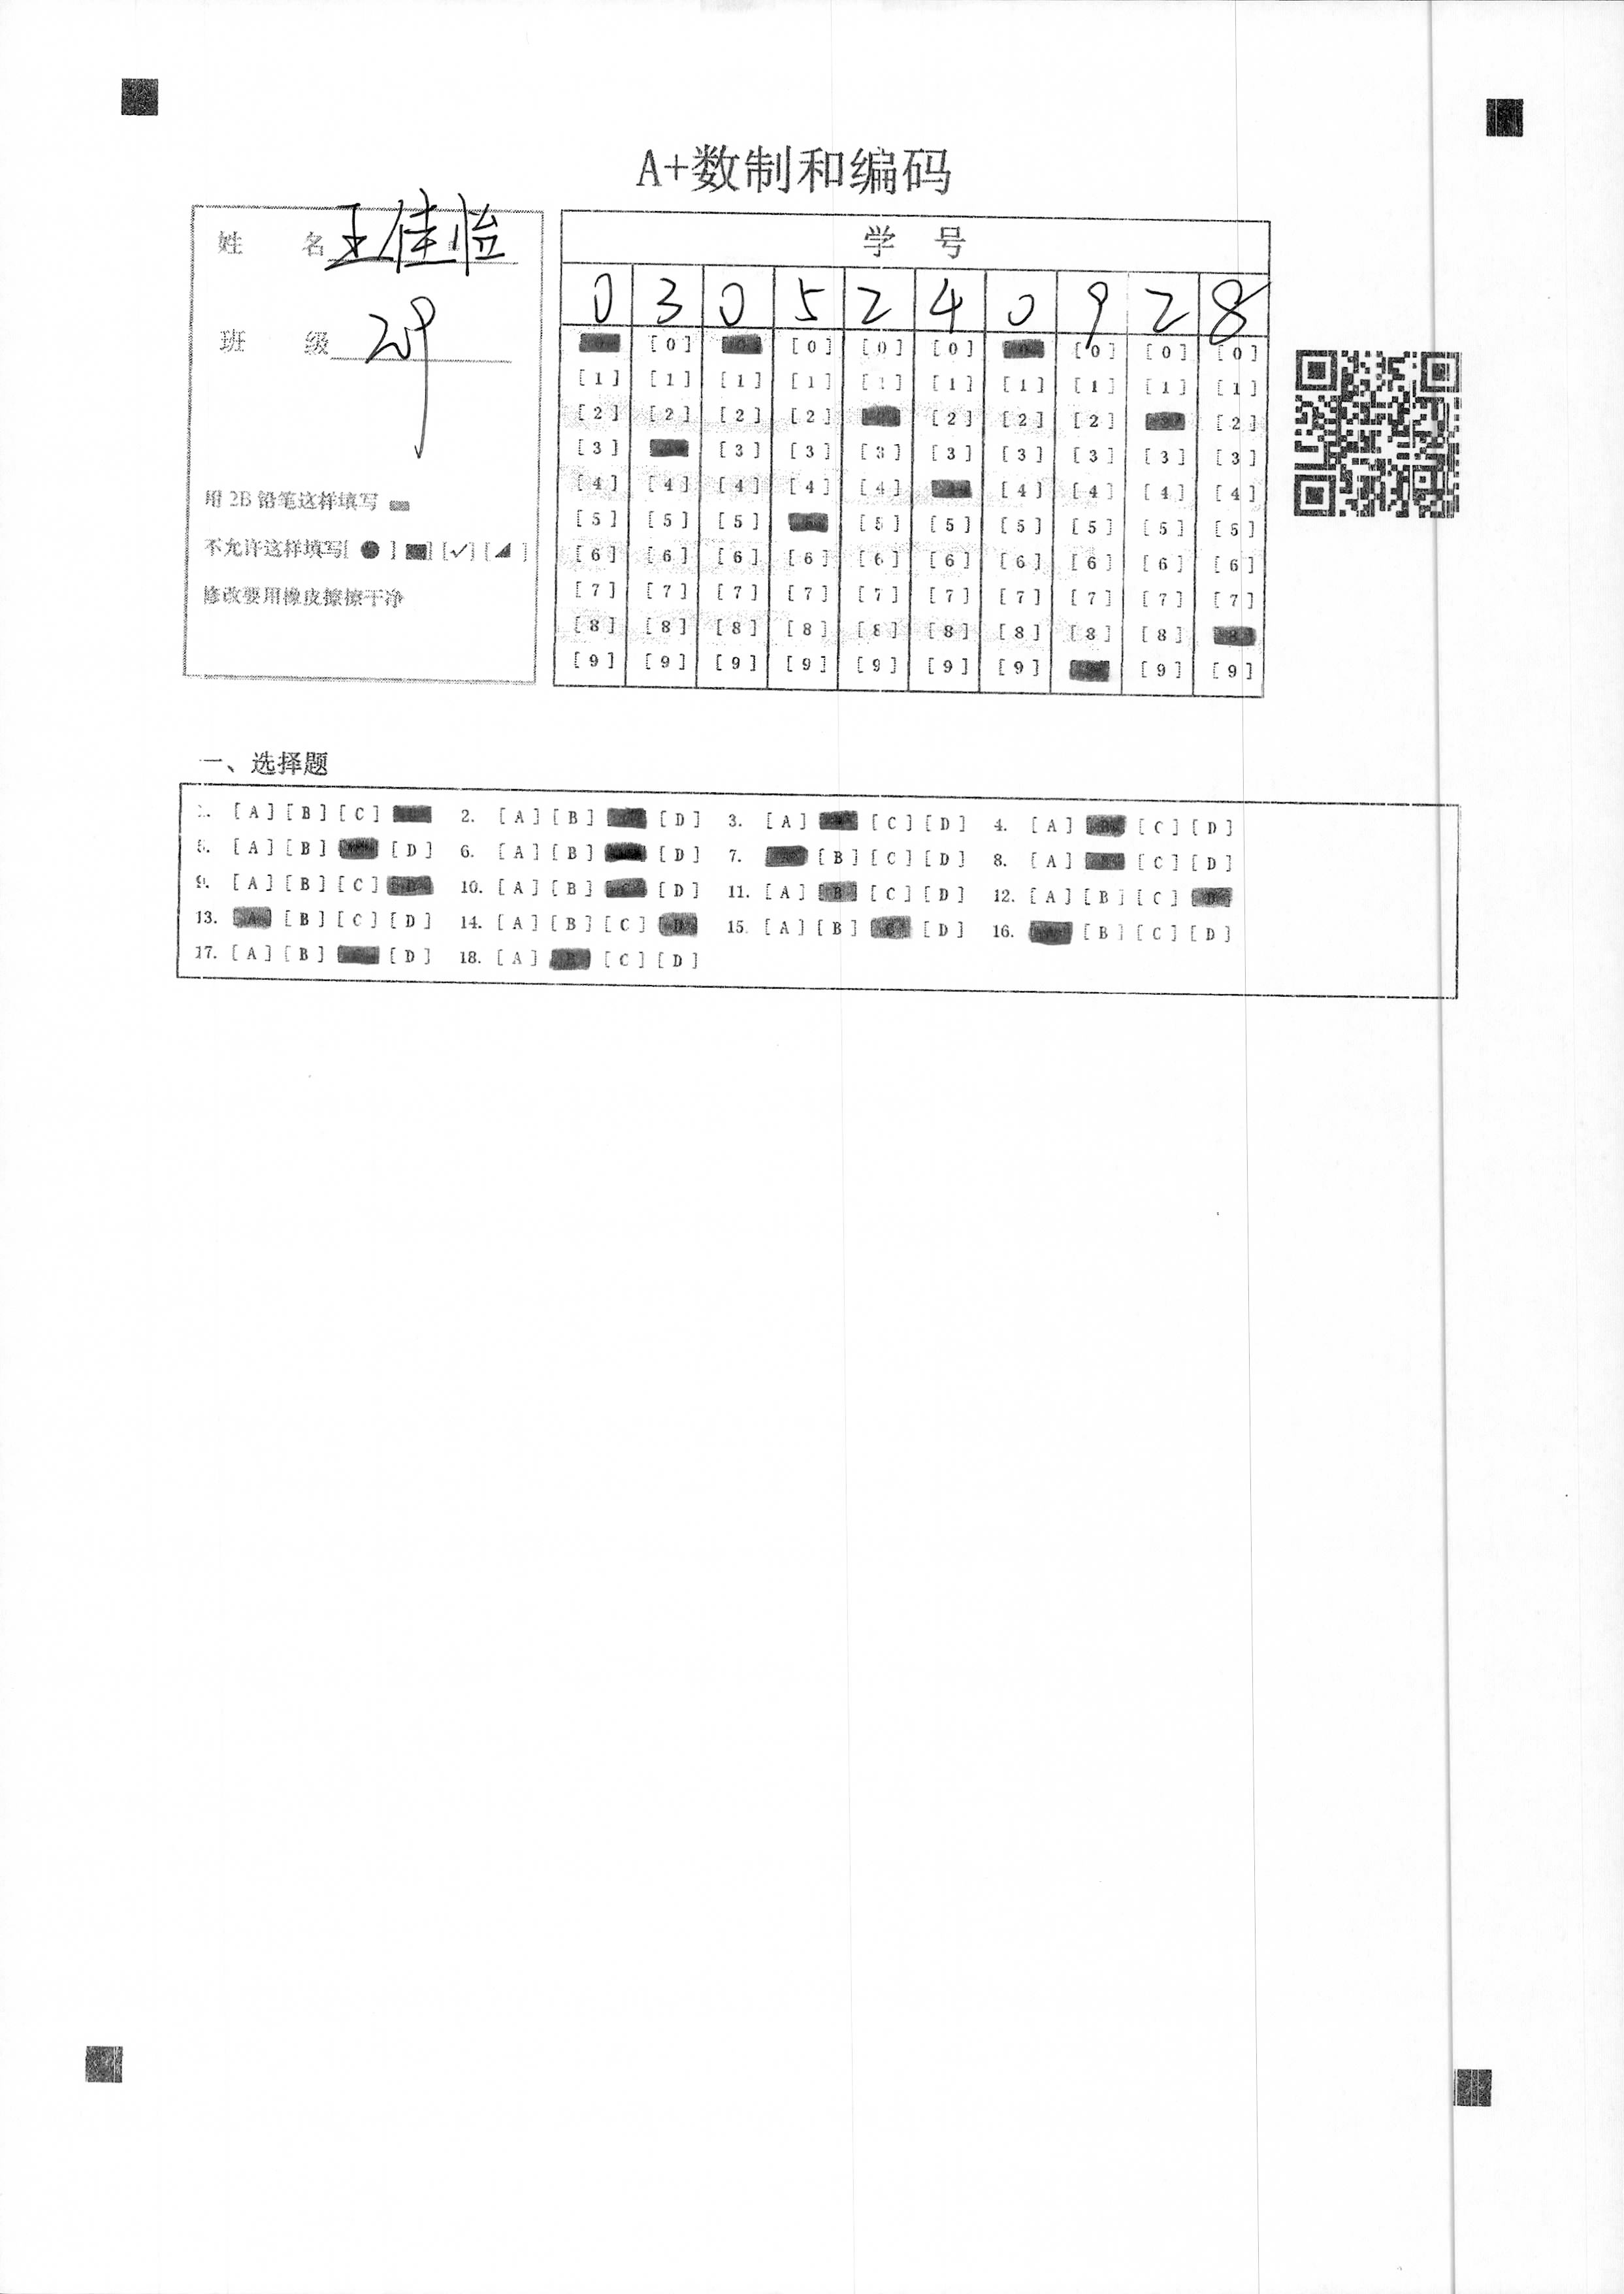 A+数制和编码
姓 名 王佳怡
班 级 29
用 2B 铅笔这样填写
不允许这样填写[ ● ] [■] [✓] [◢ ]
修改要用橡皮擦擦干净
学 号
0 3 0 5 2 4 0 9 2 8
[0] [0] [0] [0] [0] [0] [0]
[1] [1] [1] [1] [1] [1] [1] [1] [1] [1]
[2] [2] [2] [2] [2] [2] [2] [2]
[3] [3] [3] [3] [3] [3] [3] [3] [3]
[4] [4] [4] [4] [4] [4] [4] [4] [4]
[5] [5] [5] [5] [5] [5] [5] [5] [5]
[6] [6] [6] [6] [6] [6] [6] [6] [6] [6]
[7] [7] [7] [7] [7] [7] [7] [7] [7] [7]
[8] [8] [8] [8] [8] [8] [8] [8] [8] [8]
[9] [9] [9] [9] [9] [9] [9] [9] [9]
一、选择题
1. [A] [B] [C] 2. [A] [B] [D] 3. [A] [C] [D] 4. [A] [B] [C] [D]
5. [A] [B] [D] 6. [A] [B] [D] 7. [B] [C] [D] 8. [A] [C] [D]
9. [A] [B] [C] [D] 10. [A] [B] [C] [D] 11. [A] [B] [C] [D] 12. [A] [B] [C] [D]
13. [A] [B] [C] [D] 14. [A] [B] [C] [D] 15. [A] [B] [C] [D] 16. [A] [B] [C] [D]
17. [A] [B] [D] 18. [A] [B] [C] [D]